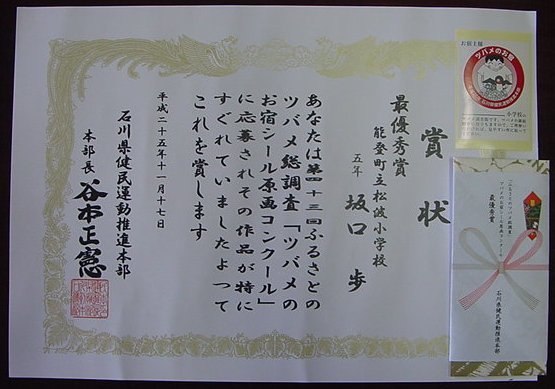 賞状
最優秀賞
能登町立松波小学校
五年 坂口 歩
あなたは第四十三回ふるさとの
ツバメ総調査「ツバメの
お宿シール原画コンクール」
に応募されその作品が特に
すぐれていましたよって
これを賞します
平成二十五年十一月十七日
石川県健民運動推進本部
本部長 谷本正憲
お宿主様
ツバメのお宿
小学校の
「ふるさとのツバメ総調査」
ツバメのお宿シール原画コンクール
最優秀賞
石川県健民運動推進本部